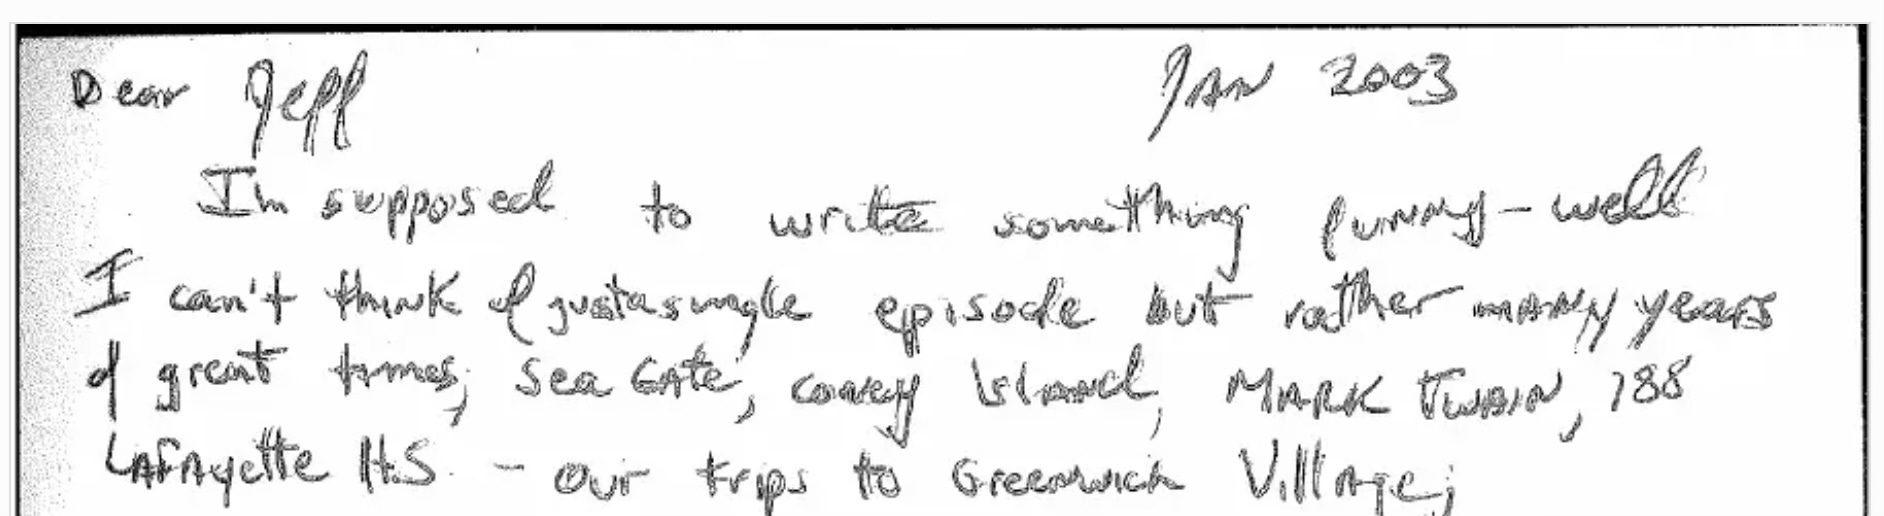 Dear Jeff JAN 2003
Im supposed to write something funny - well
I can't think of just a single episode but rather many years
of great times, Sea Gate, coney Island, MARK TWAIN, 188
LAFAyette H.S. - our trips to Greenwich Village,